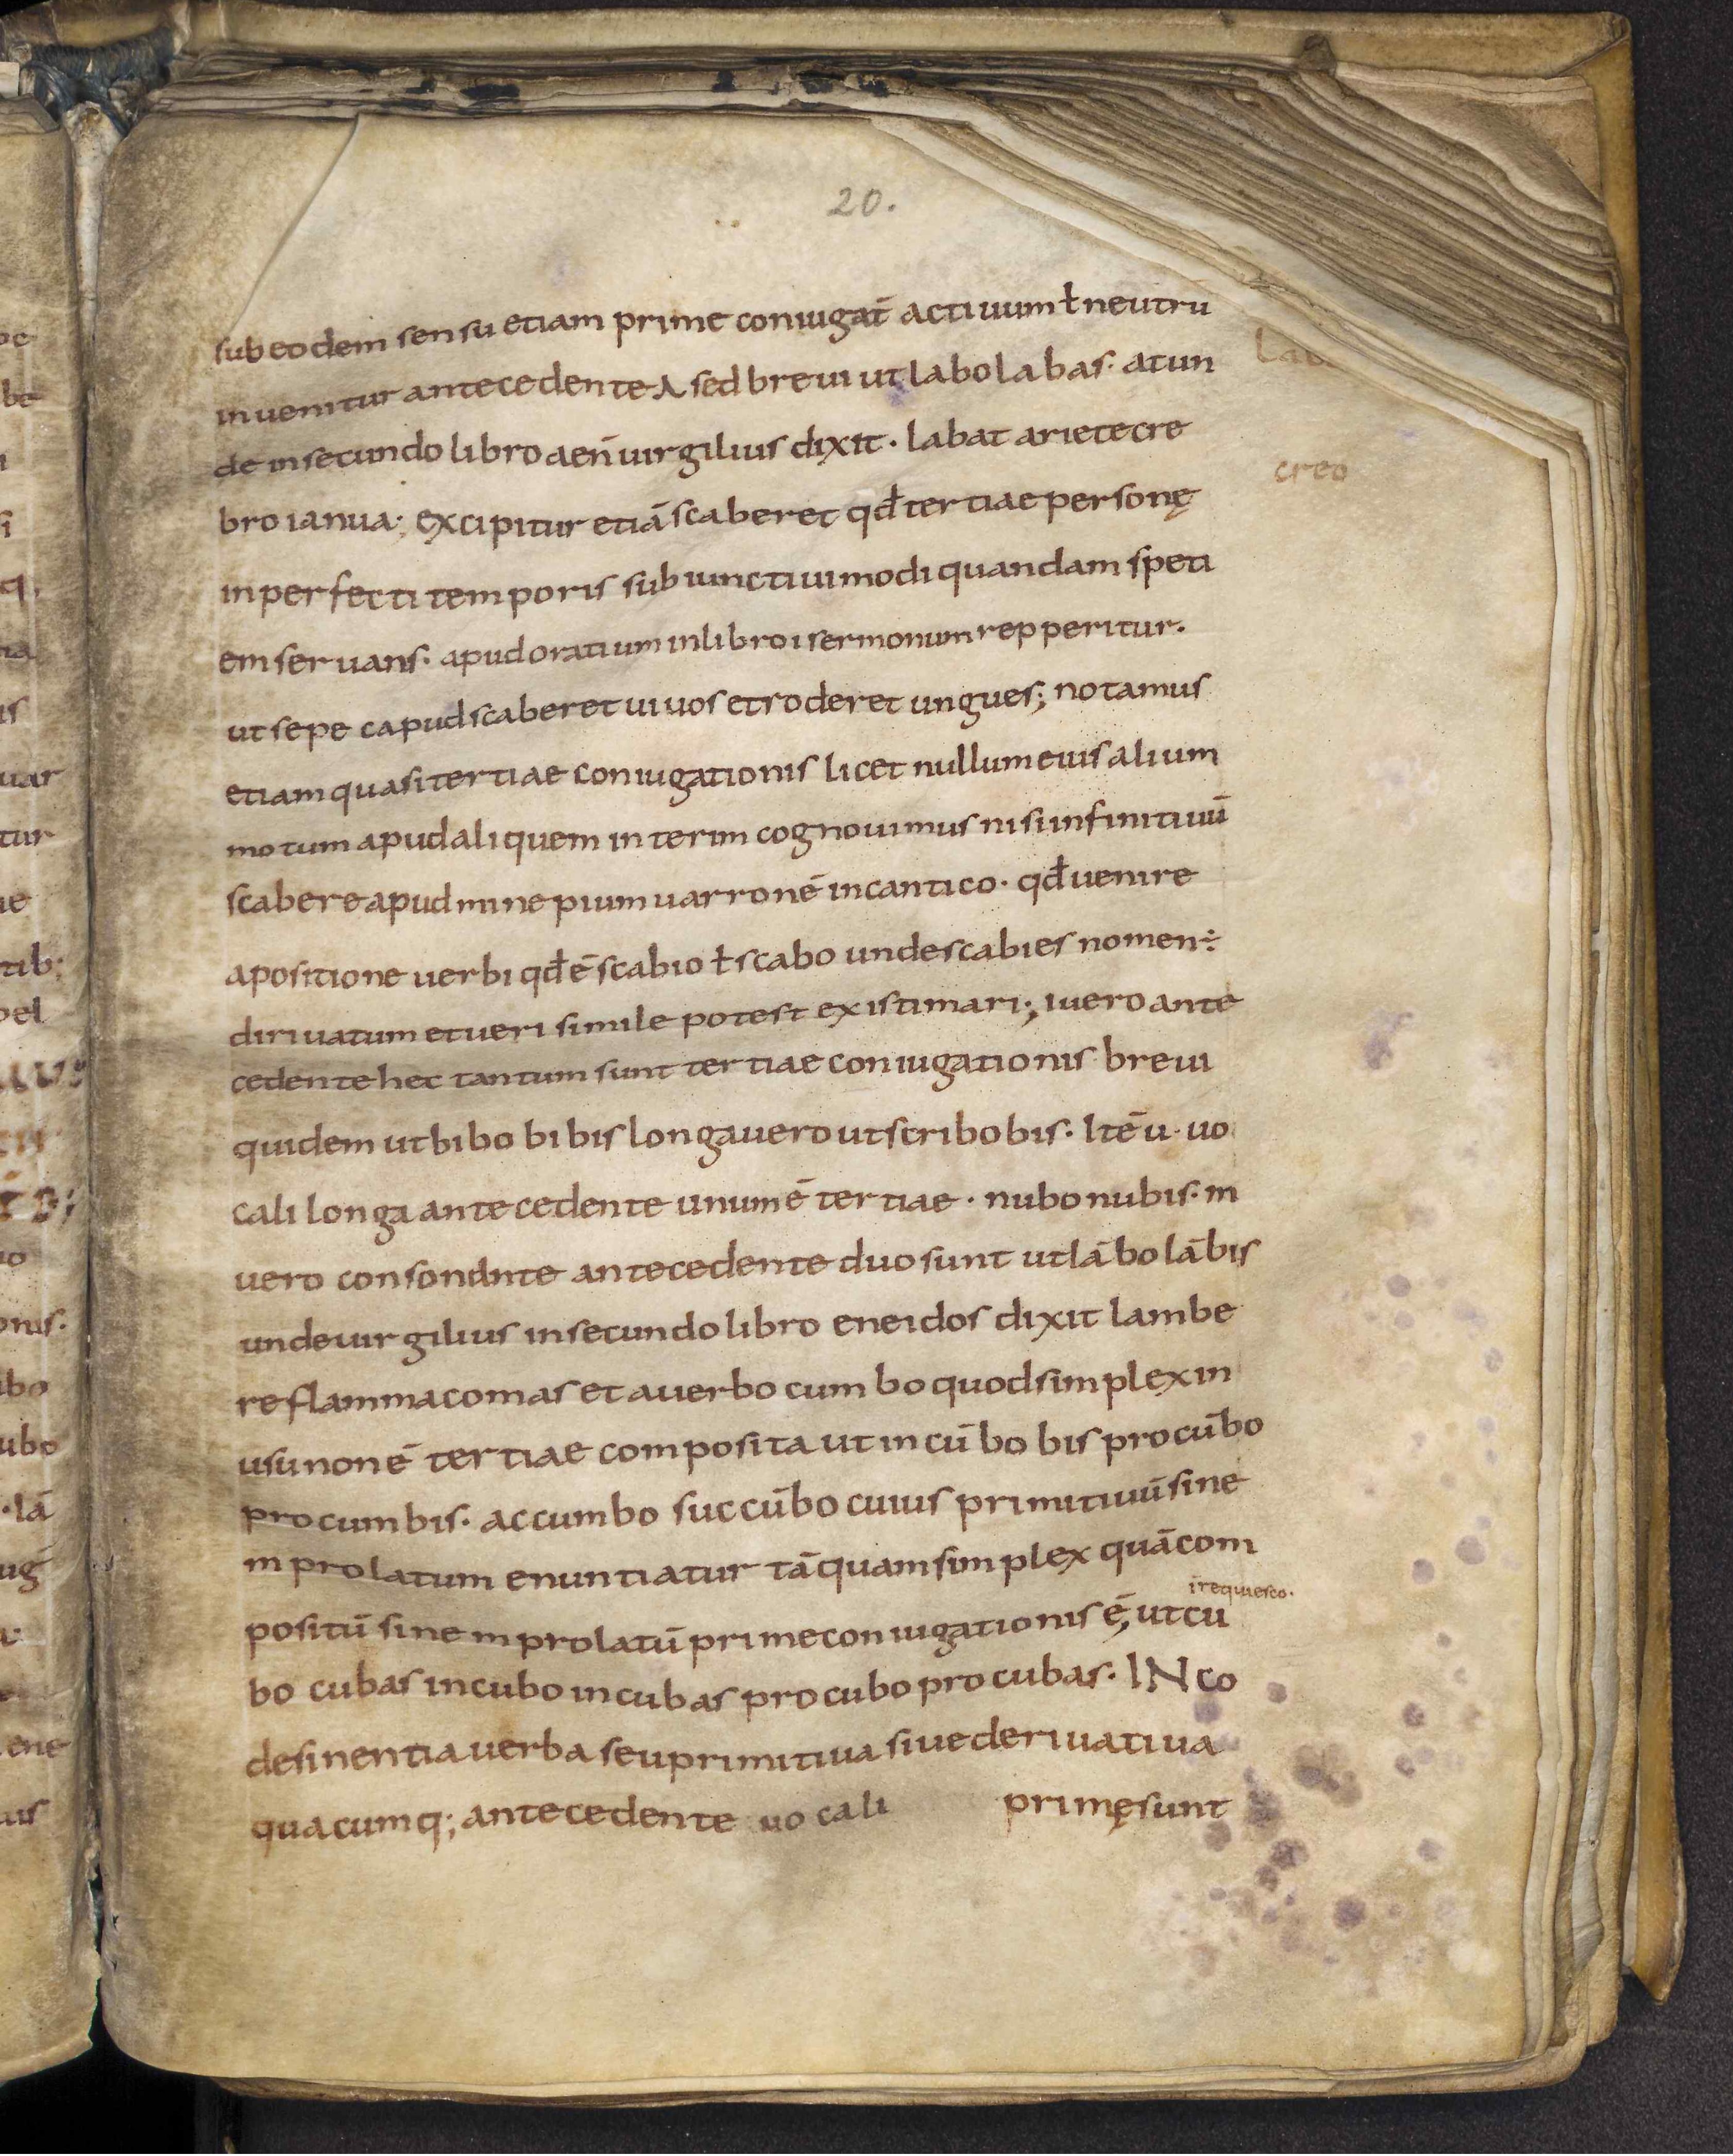 20.
sub eodem sensu etiam prime coniugat̄ actiuum ƚ neutru
inuenitur antecedente A sed breui ut labo labas· at un
de in secundo libro aen̄ uirgilius dixit· labat ariete cre
creo
bro ianua; excipitur etiā scaberet qđ tertiae personę
inperfecti temporis subiunctiui modi quandam speti
em seruans· apud oratium in libro i sermonum repperitur·
ut sepe capud scaberet uiuos et roderet ungues; notamus
etiam quasi tertiae coniugationis licet nullum eius alium
motum apud aliquem interim cognouimus nisi infinitiuū
scabere apud minepium uarronē in cantico· qđ uenire
a positione uerbi qđ ē scabio ƚ scabo unde scabies nomen ÷
diriuatum et ueri simile potest existimari; i uero ante
cedente hec tantum sunt tertiae coniugationis breui
quidem ut bibo bibis longa uero ut scribo bis· Itē u· uo
cali longa antecedente unum ē tertiae· nubo nubis· m
uero consonante antecedente duo sunt ut lābo lābis
unde uirgilius in secundo libro eneidos dixit lambe
re flamma comas et a uerbo cumbo quod simplex in
usu non ē tertiae composita ut incūbo bis procūbo
procumbis· accumbo succūbo cuius primitiuū sine
m prolatum enuntiatur tā quam simplex quā com
i requiesco·
positū sine m prolatū prime coniugationis ē; ut cu
bo cubas incubo incubas procubo procubas· IN co
desinentia uerba seu primitiua siue deriuatiua
quacumq; antecedente uocali primę sunt